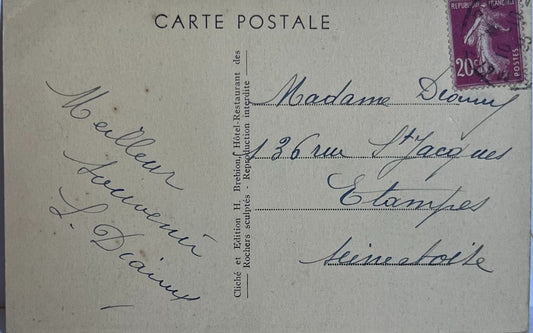 CARTE POSTALE
REPUBLIQUE FRANCAISE
20c
POSTES
Meilleur
souvenir
L.
Cliché et Edition H. Brebion, Hôtel-Restaurant des
Rochers sculptés - Reproduction interdite
Madame
136 rue St Jacques
Etampes
Seine et Oise